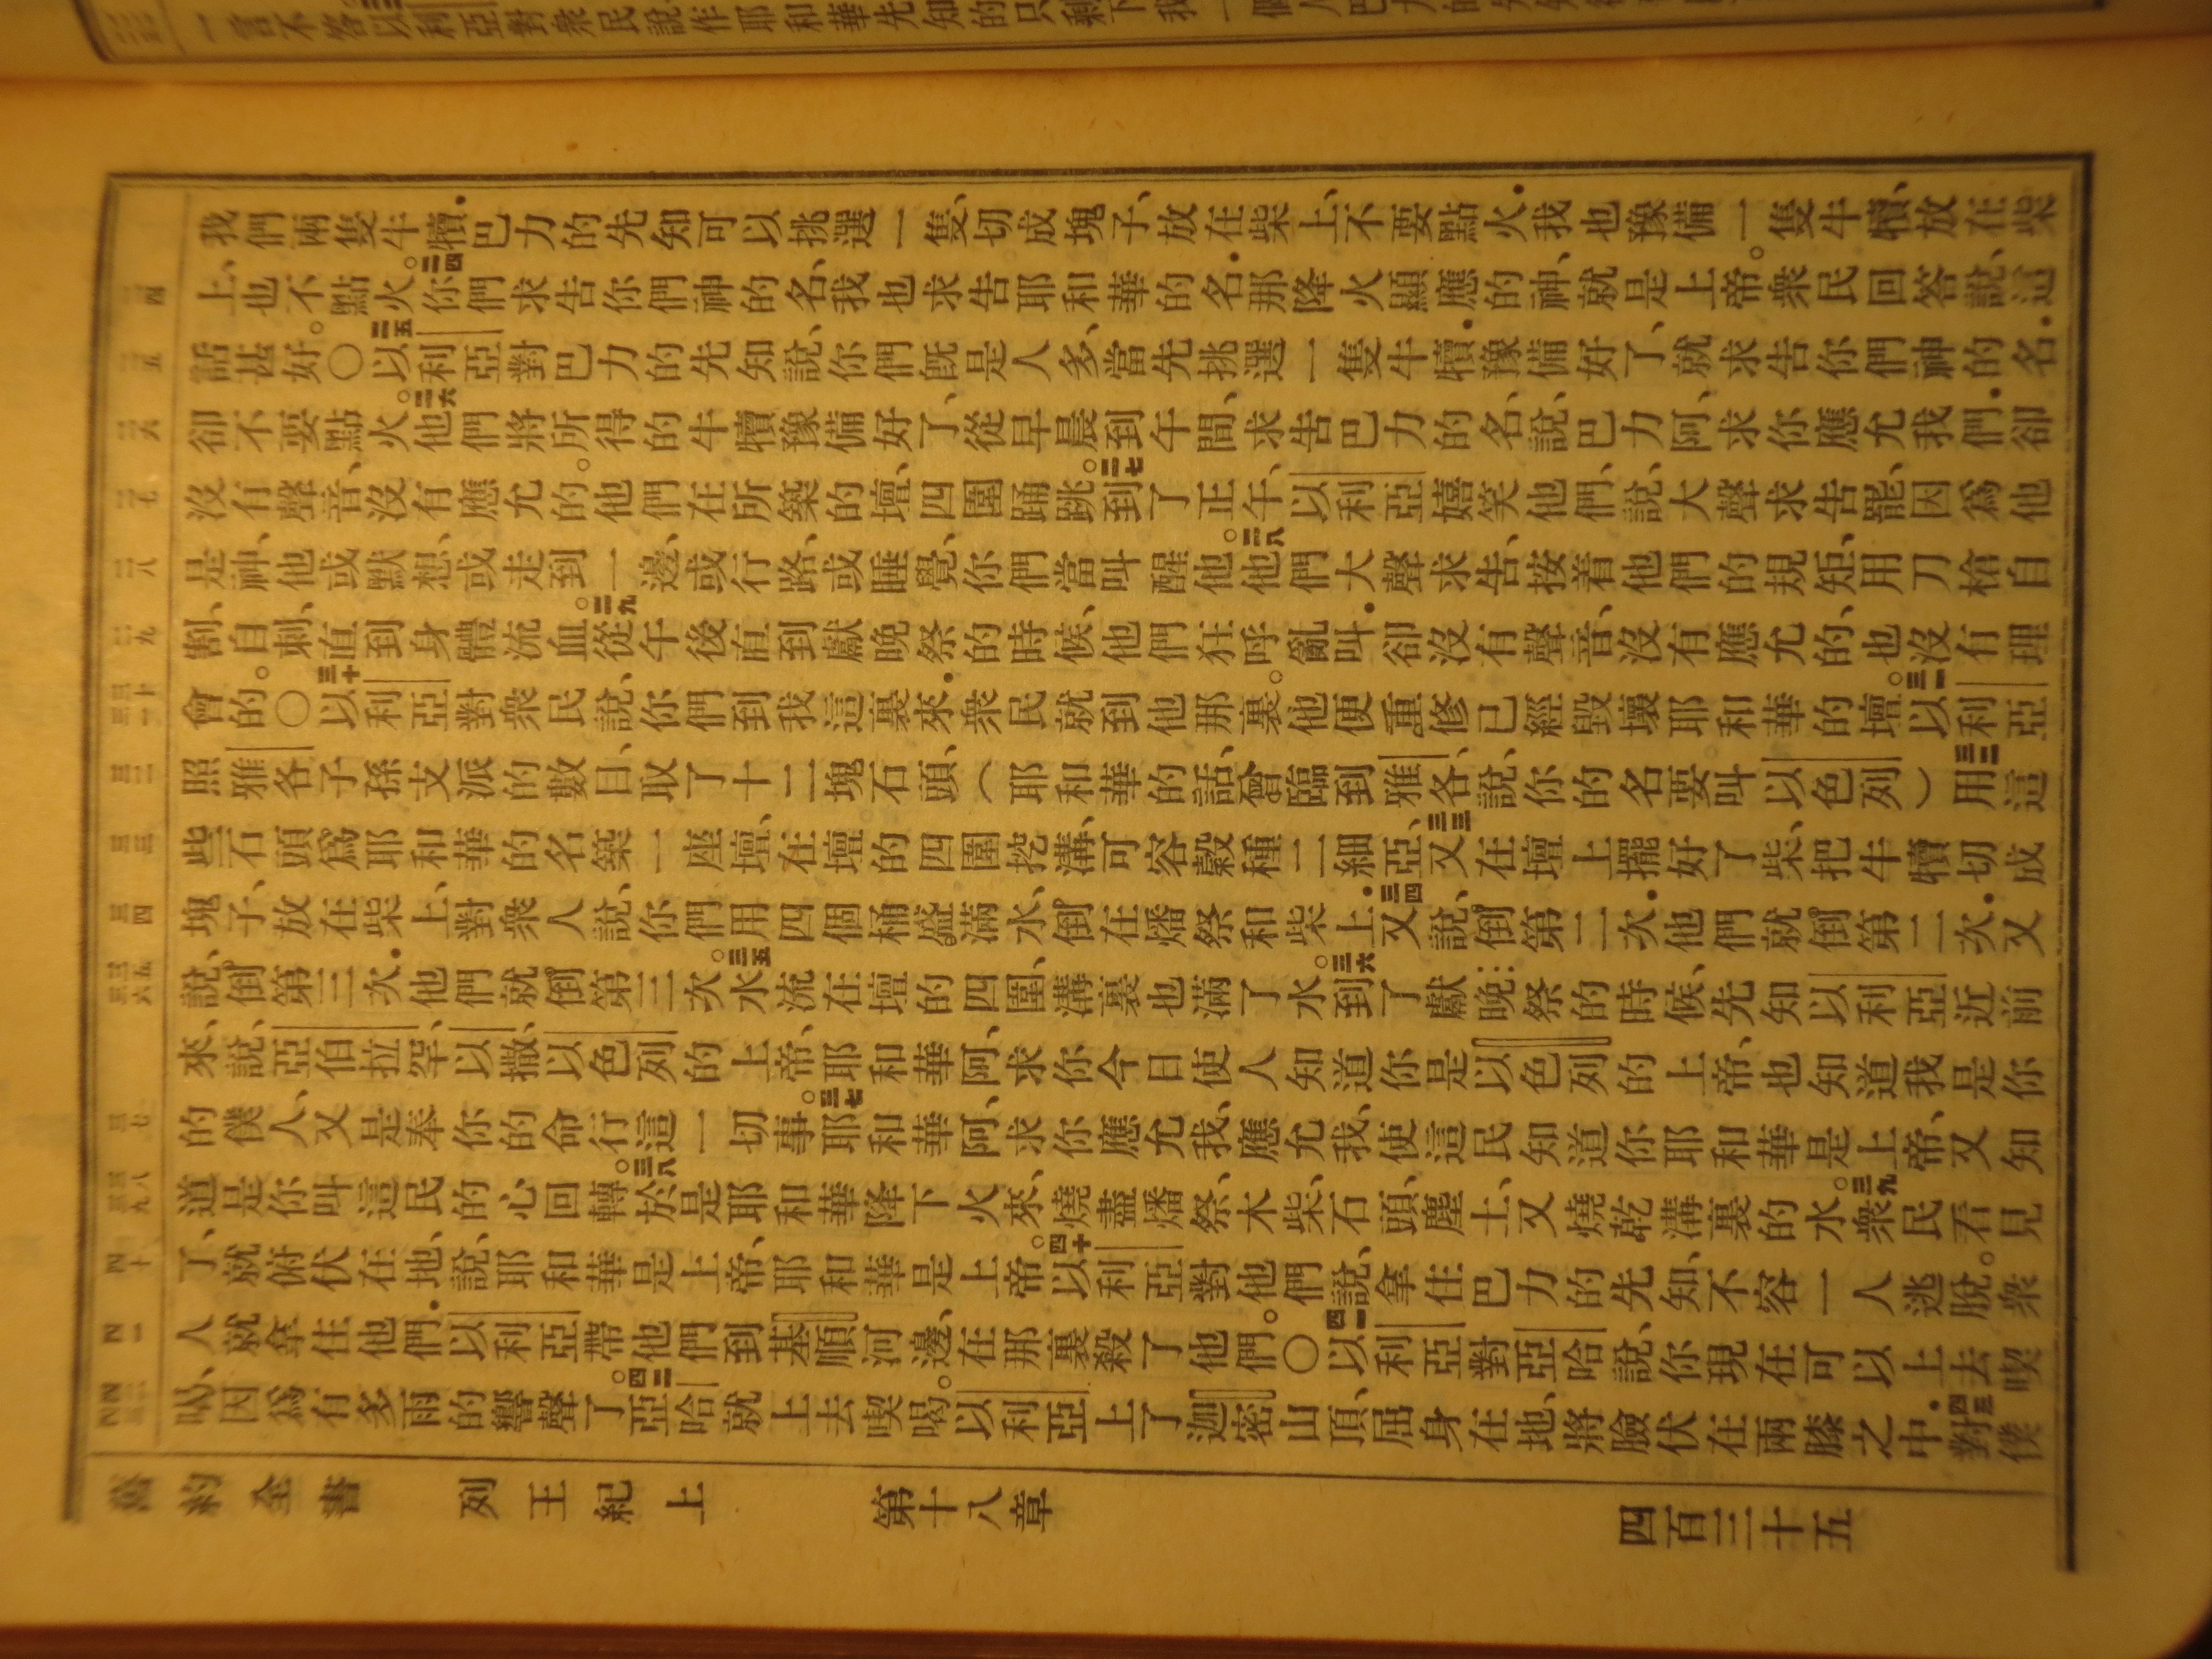 一言不答以利亞對衆民說作耶和華先知的只剩下我一個人巴力的
我們兩隻牛犢．巴力的先知可以挑選一隻、切成塊子、放在柴上、不要點火．我也豫備一隻牛犢、放在柴
上、也不點火。二四你們求告你們神的名、我也求告耶和華的名．那降火顯應的神、就是上帝。衆民回答說、這
話甚好。○二五以利亞對巴力的先知說、你們既是人多、當先挑選一隻牛犢．豫備好了、就求告你們神的名．
卻不要點火。二六他們將所得的牛犢豫備好了、從早晨到午間、求告巴力的名、說、巴力阿、求你應允我們．卻
沒有聲音、沒有應允的。他們在所築的壇、四圍踊跳。二七到了正午、以利亞嬉笑他們、說、大聲求告罷、因爲他
是神、他或默想、或走到一邊、或行路、或睡覺、你們當叫醒他。二八他們大聲求告、按着他們的規矩、用刀槍自
割、自刺、直到身體流血。二九從午後直到獻晚祭的時候、他們狂呼亂叫．卻沒有聲音、沒有應允的、也沒有理
會的。○三十以利亞對衆民說、你們到我這裏來．衆民就到他那裏。他便重修已經毀壞耶和華的壇。三一以利亞
照雅各子孫支派的數目、取了十二塊石頭、（耶和華的話、曾臨到雅各、說、你的名要叫以色列）三二用這
些石頭爲耶和華的名築一座壇、在壇的四圍挖溝、可容穀種二細亞、三三又在壇上擺好了柴、把牛犢切成
塊子、放在柴上、對衆人說、你們用四個桶盛滿水、倒在燔祭和柴上．三四又說、倒第二次．他們就倒第二次．又
說、倒第三次．他們就倒第三次。三五水流在壇的四圍、溝裏也滿了水。三六到了獻晚祭的時候、先知以利亞近前
來、說、亞伯拉罕、以撒、以色列的上帝、耶和華阿、求你今日使人知道你是以色列的上帝、也知道我是你
的僕人、又是奉你的命行這一切事。三七耶和華阿、求你應允我、應允我、使這民知道你耶和華是上帝、又知
道是你叫這民的心回轉。三八於是耶和華降下火來、燒盡燔祭、木柴、石頭、塵土、又燒乾溝裏的水。三九衆民看見
了、就俯伏在地、說、耶和華是上帝、耶和華是上帝。四十以利亞對他們說、拿住巴力的先知、不容一人逃脫。衆
人就拿住他們．以利亞帶他們到基順河邊、在那裏殺了他們。○四一以利亞對亞哈說、你現在可以上去喫
喝、因爲有多雨的響聲了。四二亞哈就上去喫喝。以利亞上了迦密山頂、屈身在地、將臉伏在兩膝之中．四三對僕
舊約全書 列王紀上 第十八章 四百三十五